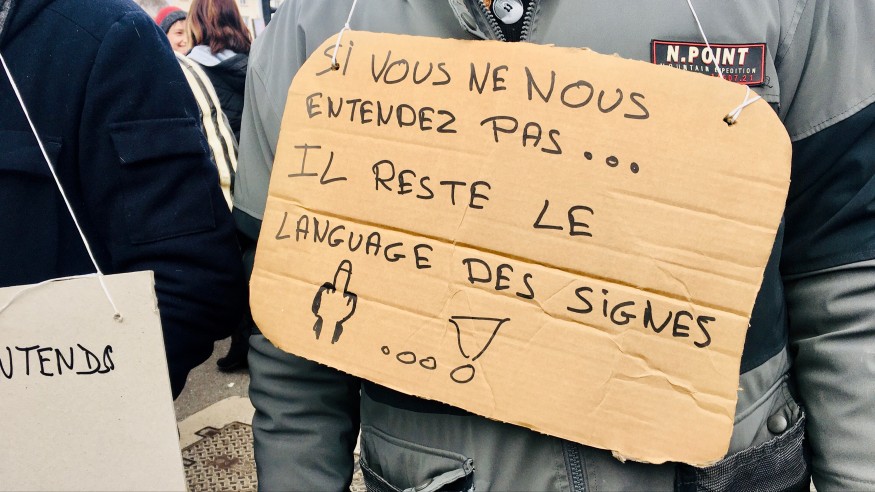 SI VOUS NE NOUS
ENTENDEZ PAS...
IL RESTE LE
LANGUAGE DES SIGNES
...!
N.POINT
MOUNTAIN EXPEDITION
NTENDS